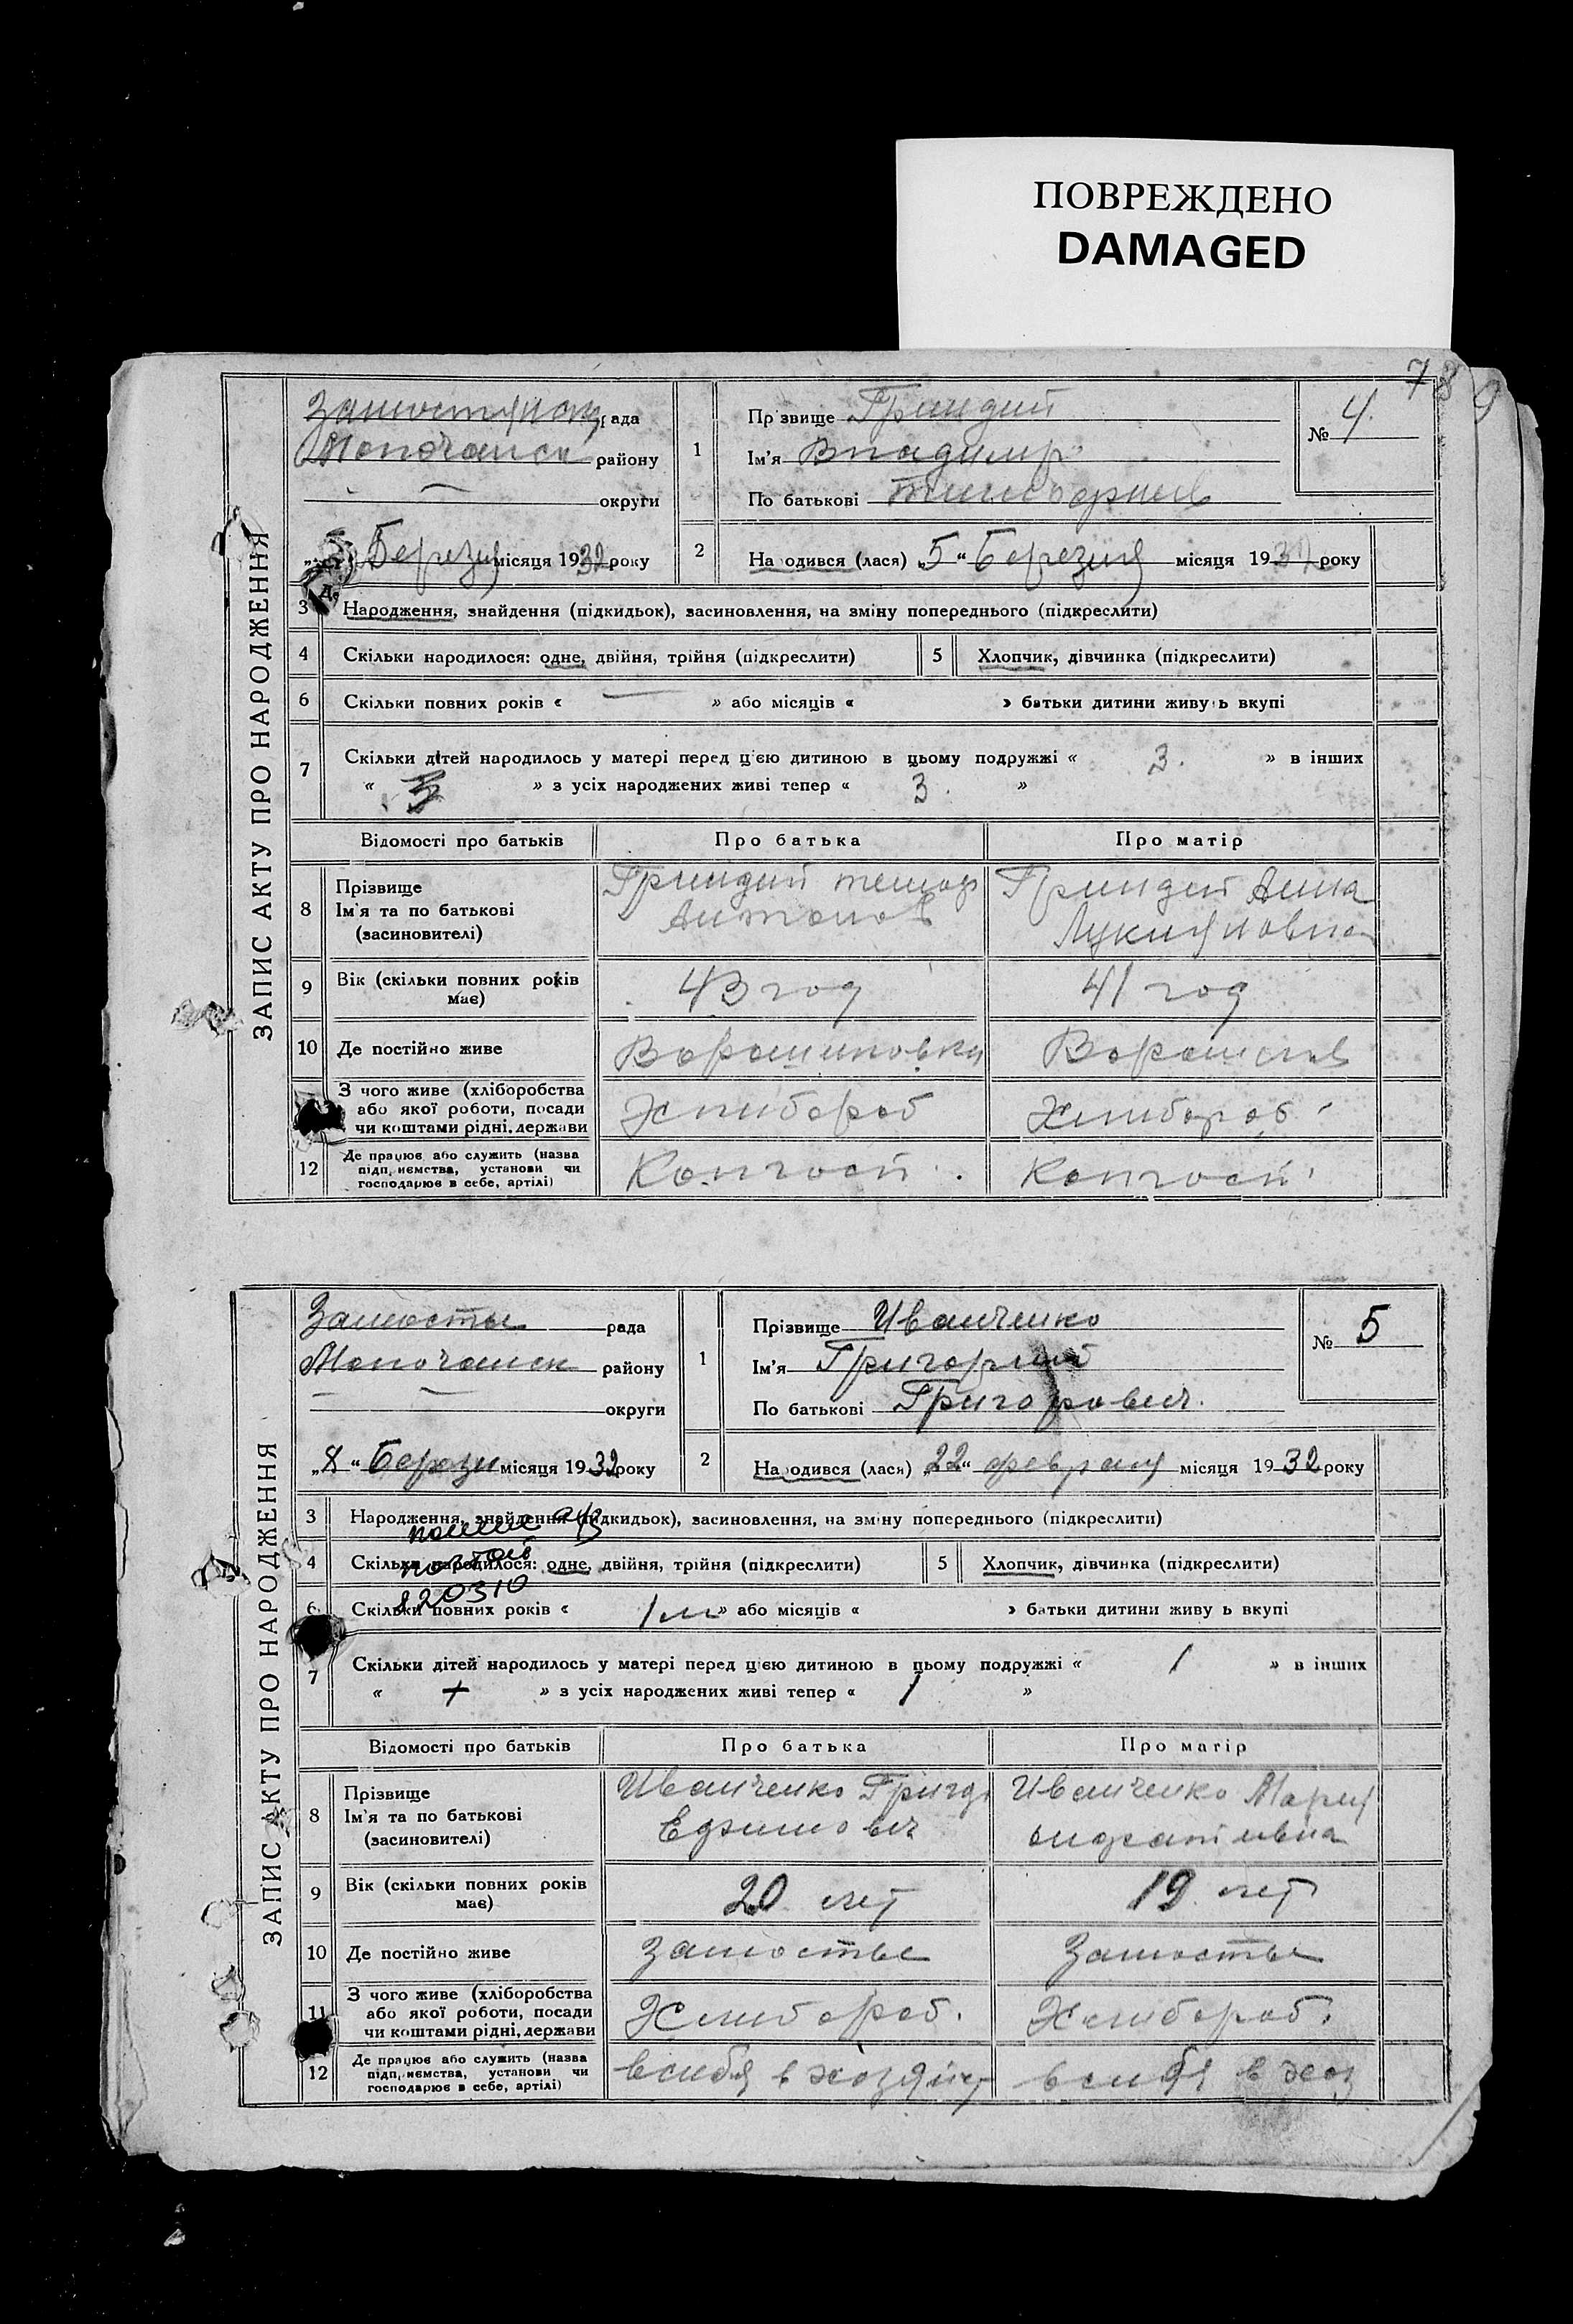 ПОВРЕЖДЕНО
DAMAGED
ЗАПИС АКТУ ПРО НАРОДЖЕННЯ
рада
району
округи
Березня місяця 1932 року
1
Прізвище Гриндий
Ім'я Владимир
По батькові
№ 4.
2
Народився (лася) „5“ Березня місяця 1932 року
3 Народження, знайдення (підкидьок), засиновлення, на зміну попереднього (підкреслити)
4 Скільки народилося: одне, двійня, трійня (підкреслити)
5 Хлопчик, дівчинка (підкреслити)
6 Скільки повних років « — » або місяців « » батьки дитини живуть вкупі
7 Скільки дітей народилось у матері перед цією дитиною в цьому подружжі « 3. » в інших
« » з усіх народжених живі тепер « 3. »
Відомості про батьків
Про батька
Про матір
8 Прізвище
Ім'я та по батькові
(засиновителі)
Гриндий
Антонов
Гриндий Анна
Лукияновна
9 Вік (скільки повних років
має)
43 год
41 год
10 Де постійно живе
Ворошиловка
Ворошилов
З чого живе (хліборобства
або якої роботи, посади
чи коштами рідні, держави
Хлибороб
Хлибороб
12 Де працює або служить (назва
підприємства, установи чи
господарює в себе, артілі)
Колгосп.
Колгосп
ЗАПИС АКТУ ПРО НАРОДЖЕННЯ
Замостье рада
Молочанск району
— — округи
„8“ Березня місяця 1932 року
1
Прізвище Иванченко
Ім'я Григорий
По батькові Григорович.
№ 5
2
Народився (лася) „22“ февраля місяця 1932 року
3 Народження, знайдення (підкидьок), засиновлення, на зміну попереднього (підкреслити)
4 Скільки народилося: одне, двійня, трійня (підкреслити)
5 Хлопчик, дівчинка (підкреслити)
820310
6 Скільки повних років « » або місяців « » батьки дитини живуть вкупі
7 Скільки дітей народилось у матері перед цією дитиною в цьому подружжі « 1 » в інших
« + » з усіх народжених живі тепер « 1 »
Відомості про батьків
Про батька
Про матір
8 Прізвище
Ім'я та по батькові
(засиновителі)
Иванченко Григор
Ефимович
Иванченко Мария
9 Вік (скільки повних років
має)
20 лет
19 лет
10 Де постійно живе
Замостье
Замостье
11 З чого живе (хліборобства
або якої роботи, посади
чи коштами рідні, держави
Хлибороб.
Хлибороб.
12 Де працює або служить (назва
підприємства, установи чи
господарює в себе, артілі)
в сибя в хозяйст
в сибя в хоз